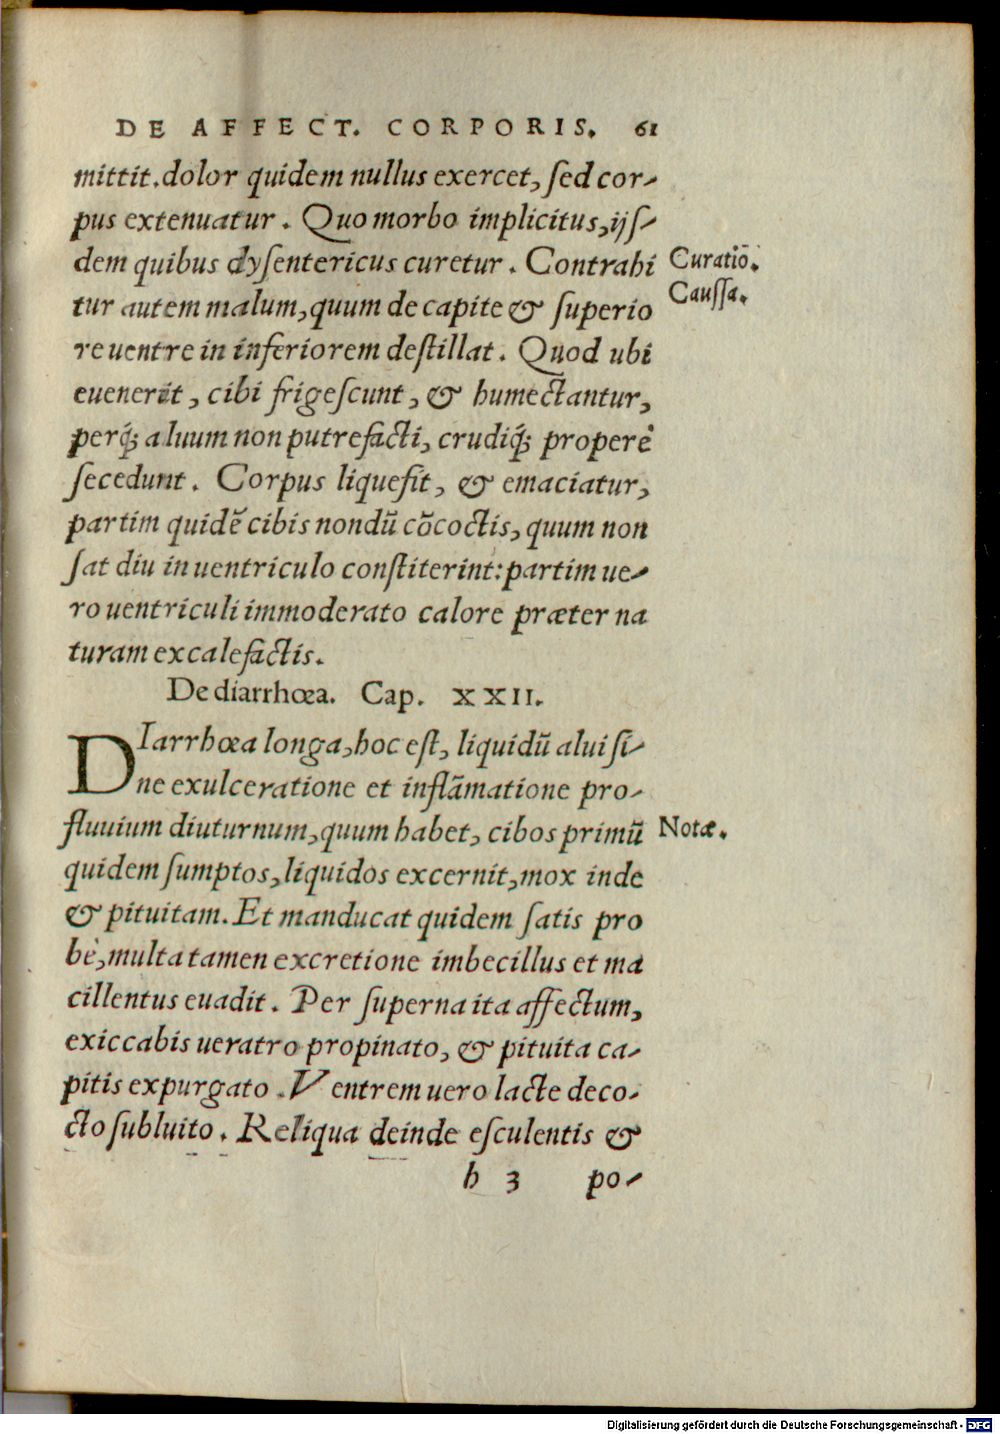 DE AFFECT. CORPORIS. 61
mittit. dolor quidem nullus exercet, sed cor-
pus extenuatur. Quo morbo implicitus, ijs-
dem quibus dysentericus curetur. Contrahi Curatiō.
tur autem malum, quum de capite & superio Caussa.
re uentre in inferiorem destillat. Quod ubi
euenerit, cibi frigescunt, & humectantur,
perq́; aluum non putrefacti, crudiq́; properè
secedunt. Corpus liquefit, & emaciatur,
partim quidē cibis nondū cōcoctis, quum non
sat diu in uentriculo constiterint: partim ue-
ro uentriculi immoderato calore præter na
turam excalefactis.
De diarrhœa. Cap. XXII.
DIarrhœa longa, hoc est, liquidū alui si-
ne exulceratione et inflāmatione pro-
fluuium diuturnum, quum habet, cibos primū Notæ.
quidem sumptos, liquidos excernit, mox inde
& pituitam. Et manducat quidem satis pro
bè, multa tamen excretione imbecillus et ma
cillentus euadit. Per superna ita affectum,
exiccabis ueratro propinato, & pituita ca-
pitis expurgato. Ventrem uero lacte deco-
cto subluito. Reliqua deinde esculentis &
h 3 po-
Digitalisierung gefördert durch die Deutsche Forschungsgemeinschaft - DFG